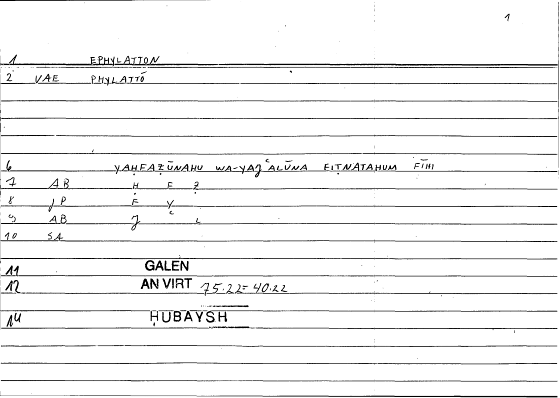 1
1 EPHYLATTON
2 VAE PHYLATTŌ
6 YAḤFAẒŪNAHU WA-YAǦʿALŪNA FITNATAHUM FĪHI
7 AB Ḥ F Ẓ
8 JP F Y
9 AB Ǧ ʿ L
10 SA
11 GALEN
12 AN VIRT 75.22 = 40.22
14 ḤUBAYSH